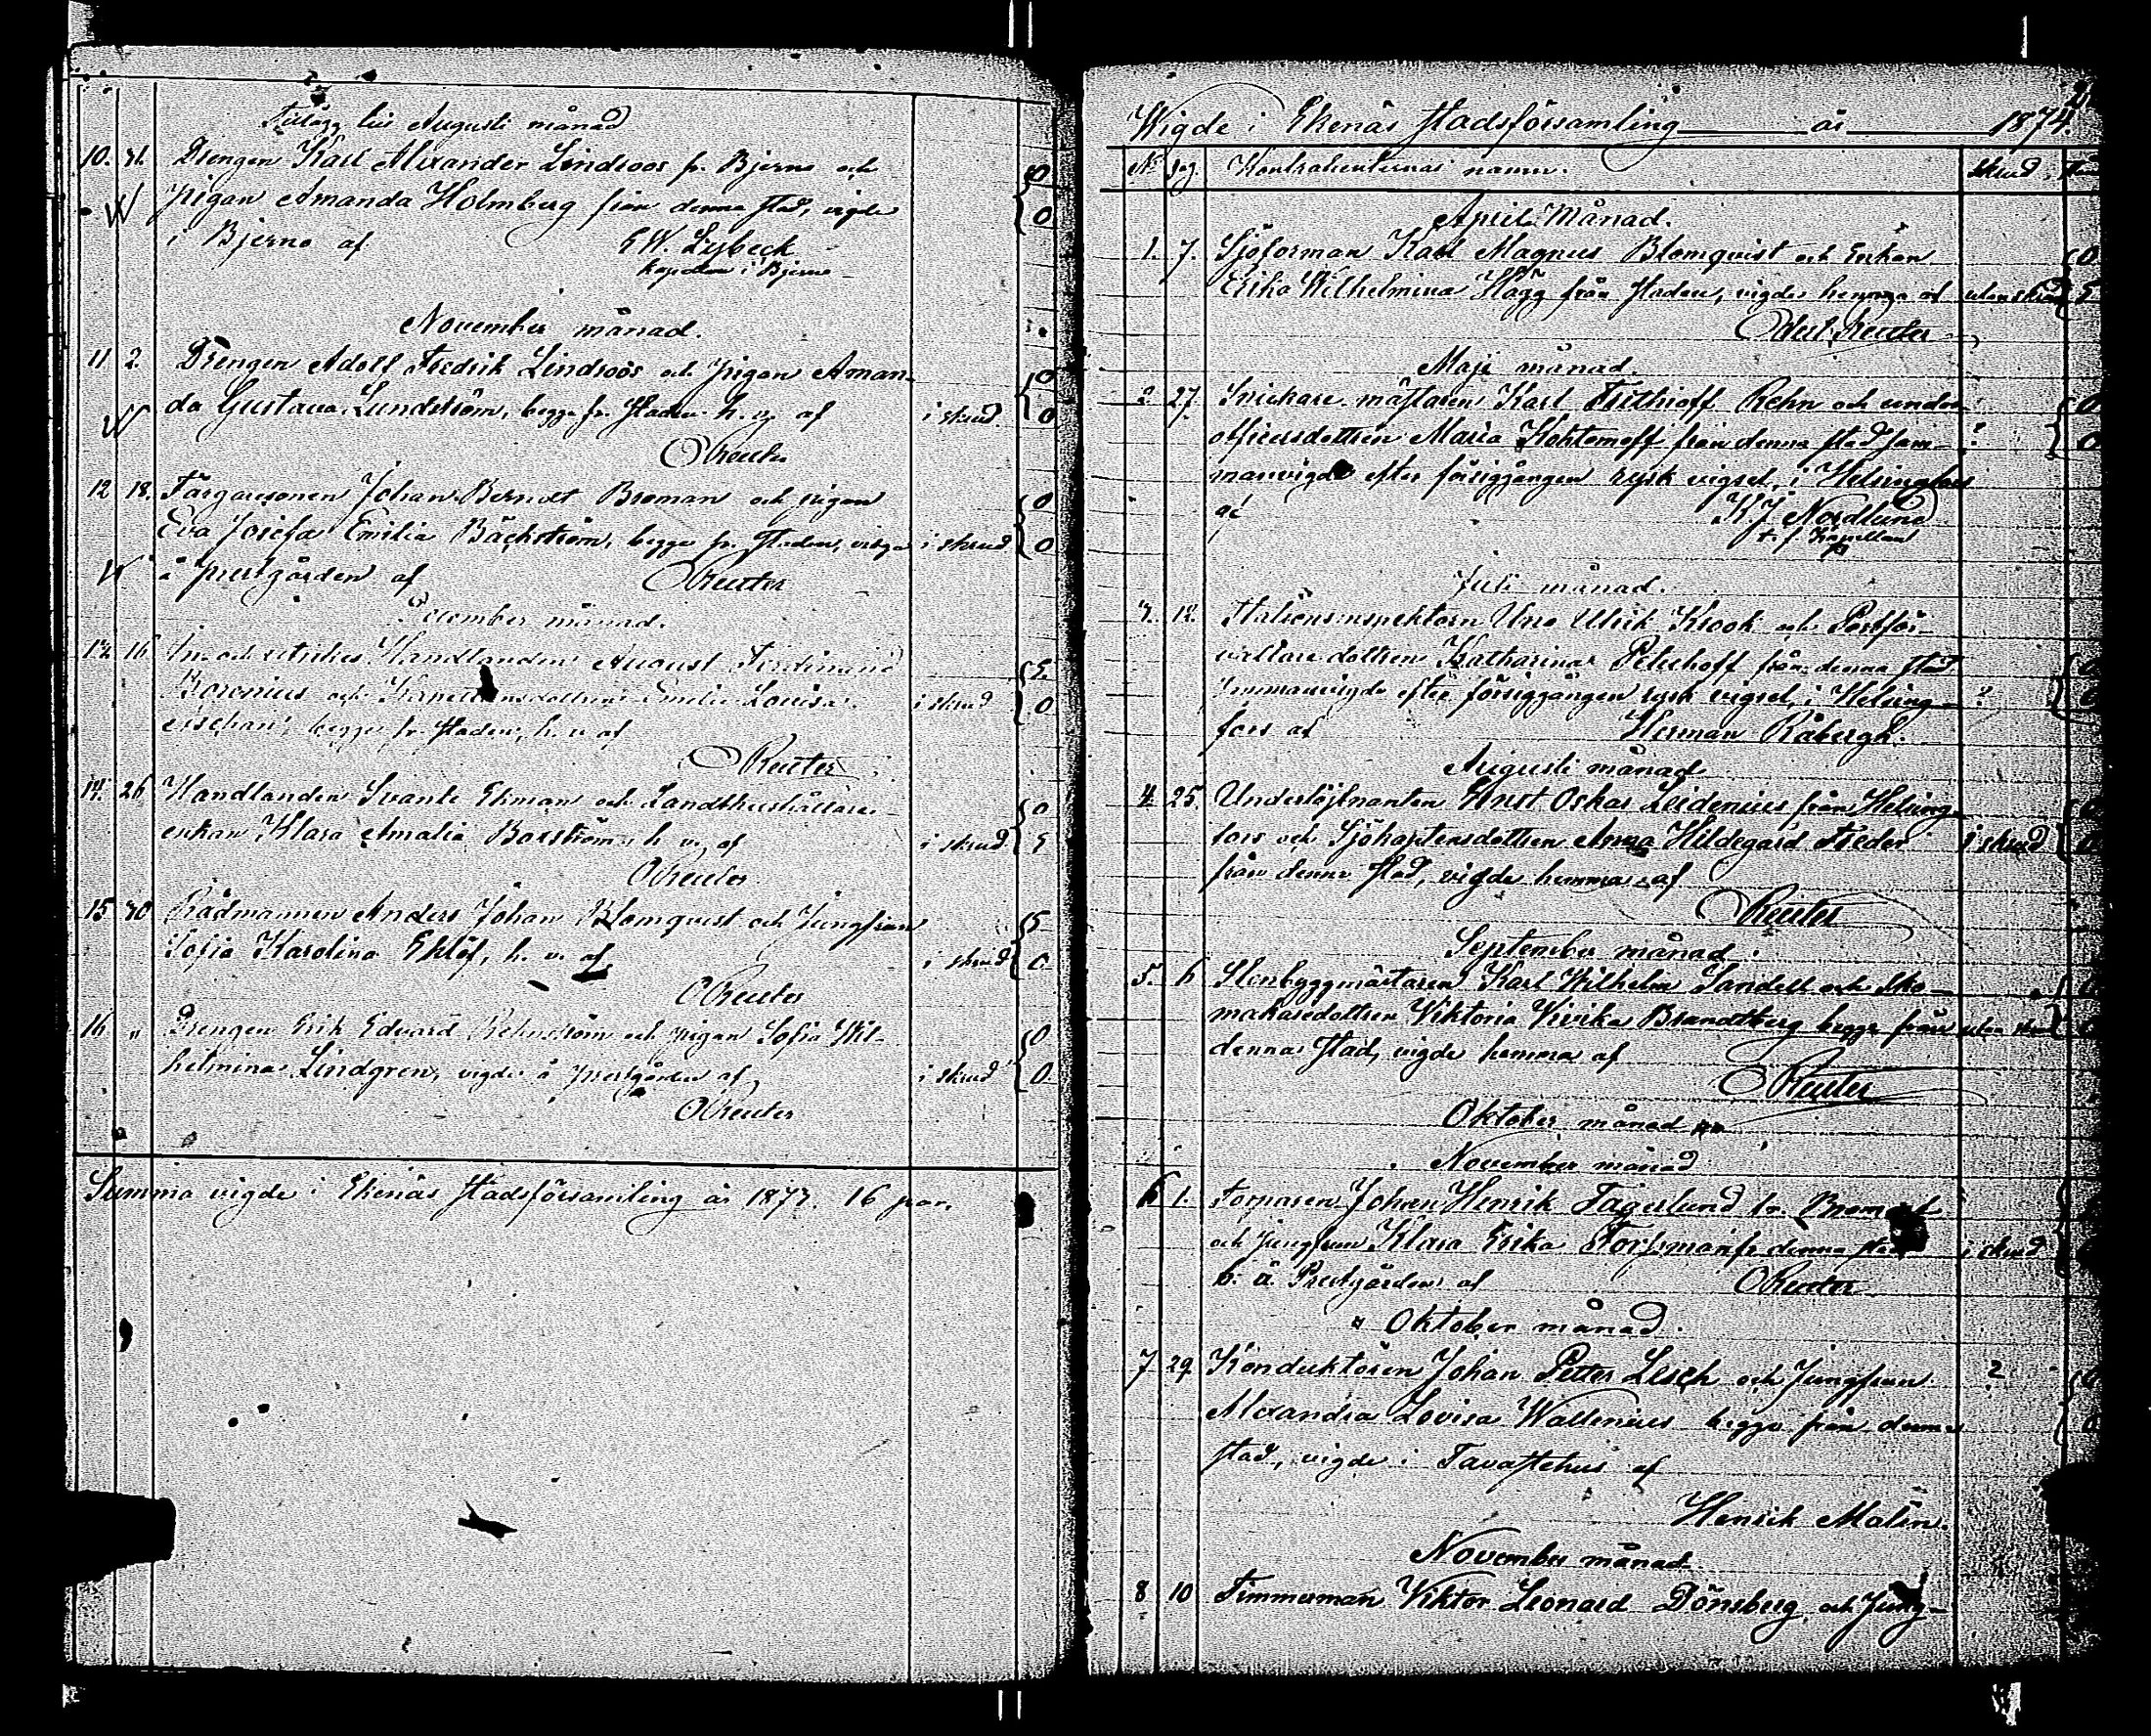 Tillägg till Augusti månad
10. 31. Drengen Karl Alexander Lindroos fr. Bjerno och
pigan Amanda Holmberg från denna stad, vigde
i Bjerno af
E W. Lybeck
kapellan i Bjerno
November månad.
11 2. Drengen Adolf Fredrik Lindroos och pigan Aman-
da Gustava Lundström, begge fr. Staden h. v. af i skrud. 0 0
OReuter
12 18. Färgaresonen Johan Berndt Broman och pigan 0
Eva Josefa Emilia Bäckström, begge fr. Staden, vigde i skrud 0
å prestgården af OReuter
December månad.
13. 16 Handlanden August Ferdinand
Boronius och Emilie Lovisa i skrud 0
begge fr. Staden, h. v. af
OReuter
14. 26 Handlanden Svante Ekman och 0
enkan Klara Amalia Boxström h. v. af i skrud 5
OReuter
15 30 Rådmannen Anders Johan Blomquist och Jungfrun 5
Sofia Karolina Eklöf, h. v. af i skrud 0
OReuter
16 " Drengen Erik Edvard Rehnström och pigan Sofia Wil- 0
helmina Lindgren, vigde å prestgården af i skrud 0
OReuter
Summa vigde i Ekenäs Stadsförsamling år 1873. 16 par.
Wigde i Ekenäs Stadsförsamling år 1874.
No Dag. Kontrahenternas namn. skrud.
April Månad.
1. 7. Sjöforman Karl Magnus Blomquist och Enkan 0
Erika Wilhelmina Hägg från Staden, vigde hemma af utan skrud 5
Reuter
Maji månad.
2. 27. Snickare mästaren Karl Frithioff Rehn och under- 0
officersdottren Maria från denna stad sam- ? 0
manvigde efter försiggången rysk vigsel, i Helsingfors
af K J Nordlund
t. f. Kapellan
Juli månad.
3. 12. Stationsinspektorn Uno Ulrik Krook och Postför-
valtare dottren Katharina från denna stad
sammanvigde efter försiggången rysk vigsel, i Helsing- ?
fors af Herman Råbergh.
Augusti månad
4. 25. Underlöjtnanten Ernst Oskar Leidenius från Helsing-
fors och Sjökaptensdottren Anna Hildegard i skrud
från denna stad, vigde hemma af
OReuter
September månad.
5. 6 Stenbyggmästaren Karl Wilhelm Sandell och Sko-
makaredottren Viktoria Vivika Brandtberg begge från utan
denna stad, vigde hemma af
OReuter
Oktober månad
November månad
6 1. Torparen Johan Henrik Fagerlund fr. Bromarf
och jungfrun Klara Erika Forsman fr. denna stad i skrud
å Prestgården af OReuter
Oktober månad.
7 29. Konduktören Johan Petter Lesch och Jungfrun ?
Alexandra Lovisa Wallenius begge från denna
stad, vigde i Tavastehus af
Henrik Malin.
November månad
8 10 Timmerman Viktor Leonard Dönsberg och Jung-